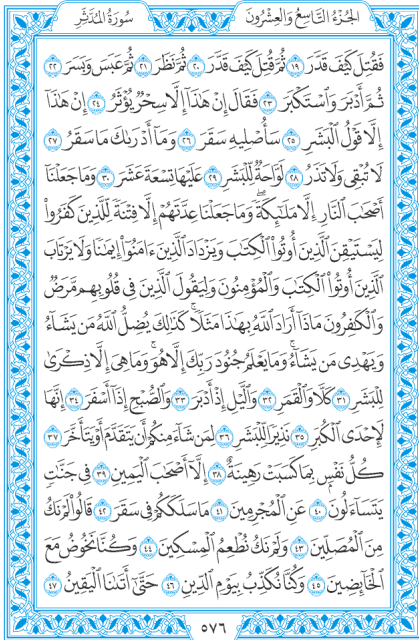 الجزء التاسع والعشرون
سورة المدثر
فَقُتِلَ كَيْفَ قَدَّرَ ١٩ ثُمَّ قُتِلَ كَيْفَ قَدَّرَ ٢٠ ثُمَّ نَظَرَ ٢١ ثُمَّ عَبَسَ وَبَسَرَ ٢٢
ثُمَّ أَدْبَرَ وَٱسْتَكْبَرَ ٢٣ فَقَالَ إِنْ هَٰذَآ إِلَّا سِحْرٌ يُؤْثَرُ ٢٤ إِنْ هَٰذَآ
إِلَّا قَوْلُ ٱلْبَشَرِ ٢٥ سَأُصْلِيهِ سَقَرَ ٢٦ وَمَآ أَدْرَىٰكَ مَا سَقَرُ ٢٧
لَا تُبْقِى وَلَا تَذَرُ ٢٨ لَوَّاحَةٌ لِّلْبَشَرِ ٢٩ عَلَيْهَا تِسْعَةَ عَشَرَ ٣٠ وَمَا جَعَلْنَآ
أَصْحَٰبَ ٱلنَّارِ إِلَّا مَلَٰٓئِكَةً ۙ وَمَا جَعَلْنَا عِدَّتَهُمْ إِلَّا فِتْنَةً لِّلَّذِينَ كَفَرُوا۟
لِيَسْتَيْقِنَ ٱلَّذِينَ أُوتُوا۟ ٱلْكِتَٰبَ وَيَزْدَادَ ٱلَّذِينَ ءَامَنُوٓا۟ إِيمَٰنًا ۙ وَلَا يَرْتَابَ
ٱلَّذِينَ أُوتُوا۟ ٱلْكِتَٰبَ وَٱلْمُؤْمِنُونَ ۙ وَلِيَقُولَ ٱلَّذِينَ فِى قُلُوبِهِم مَّرَضٌ
وَٱلْكَٰفِرُونَ مَاذَآ أَرَادَ ٱللَّهُ بِهَٰذَا مَثَلًا ۚ كَذَٰلِكَ يُضِلُّ ٱللَّهُ مَن يَشَآءُ
وَيَهْدِى مَن يَشَآءُ ۚ وَمَا يَعْلَمُ جُنُودَ رَبِّكَ إِلَّا هُوَ ۚ وَمَا هِىَ إِلَّا ذِكْرَىٰ
لِلْبَشَرِ ٣١ كَلَّا وَٱلْقَمَرِ ٣٢ وَٱلَّيْلِ إِذْ أَدْبَرَ ٣٣ وَٱلصُّبْحِ إِذَآ أَسْفَرَ ٣٤ إِنَّهَا
لَإِحْدَى ٱلْكُبَرِ ٣٥ نَذِيرًا لِّلْبَشَرِ ٣٦ لِمَن شَآءَ مِنكُمْ أَن يَتَقَدَّمَ أَوْ يَتَأَخَّرَ ٣٧
كُلُّ نَفْسٍۭ بِمَا كَسَبَتْ رَهِينَةٌ ٣٨ إِلَّآ أَصْحَٰبَ ٱلْيَمِينِ ٣٩ فِى جَنَّٰتٍ
يَتَسَآءَلُونَ ٤٠ عَنِ ٱلْمُجْرِمِينَ ٤١ مَا سَلَكَكُمْ فِى سَقَرَ ٤٢ قَالُوا۟ لَمْ نَكُ
مِنَ ٱلْمُصَلِّينَ ٤٣ وَلَمْ نَكُ نُطْعِمُ ٱلْمِسْكِينَ ٤٤ وَكُنَّا نَخُوضُ مَعَ
ٱلْخَآئِضِينَ ٤٥ وَكُنَّا نُكَذِّبُ بِيَوْمِ ٱلدِّينِ ٤٦ حَتَّىٰٓ أَتَىٰنَا ٱلْيَقِينُ ٤٧
٥٧٦